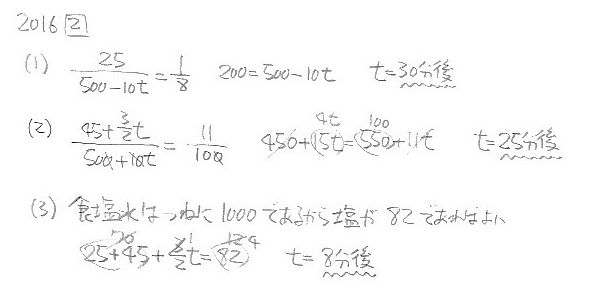 2016 2
(1) 25/(500-10t) = 1/8 200=500-10t t=30分後
(2) (45+3/2t)/(500+10t) = 11/100 450+15t=550+11t 4t 100 t=25分後
(3) 食塩水はつねに1000であるから塩が82であればよい
25+45+3/2t=82 70 12 4 1 t=8分後